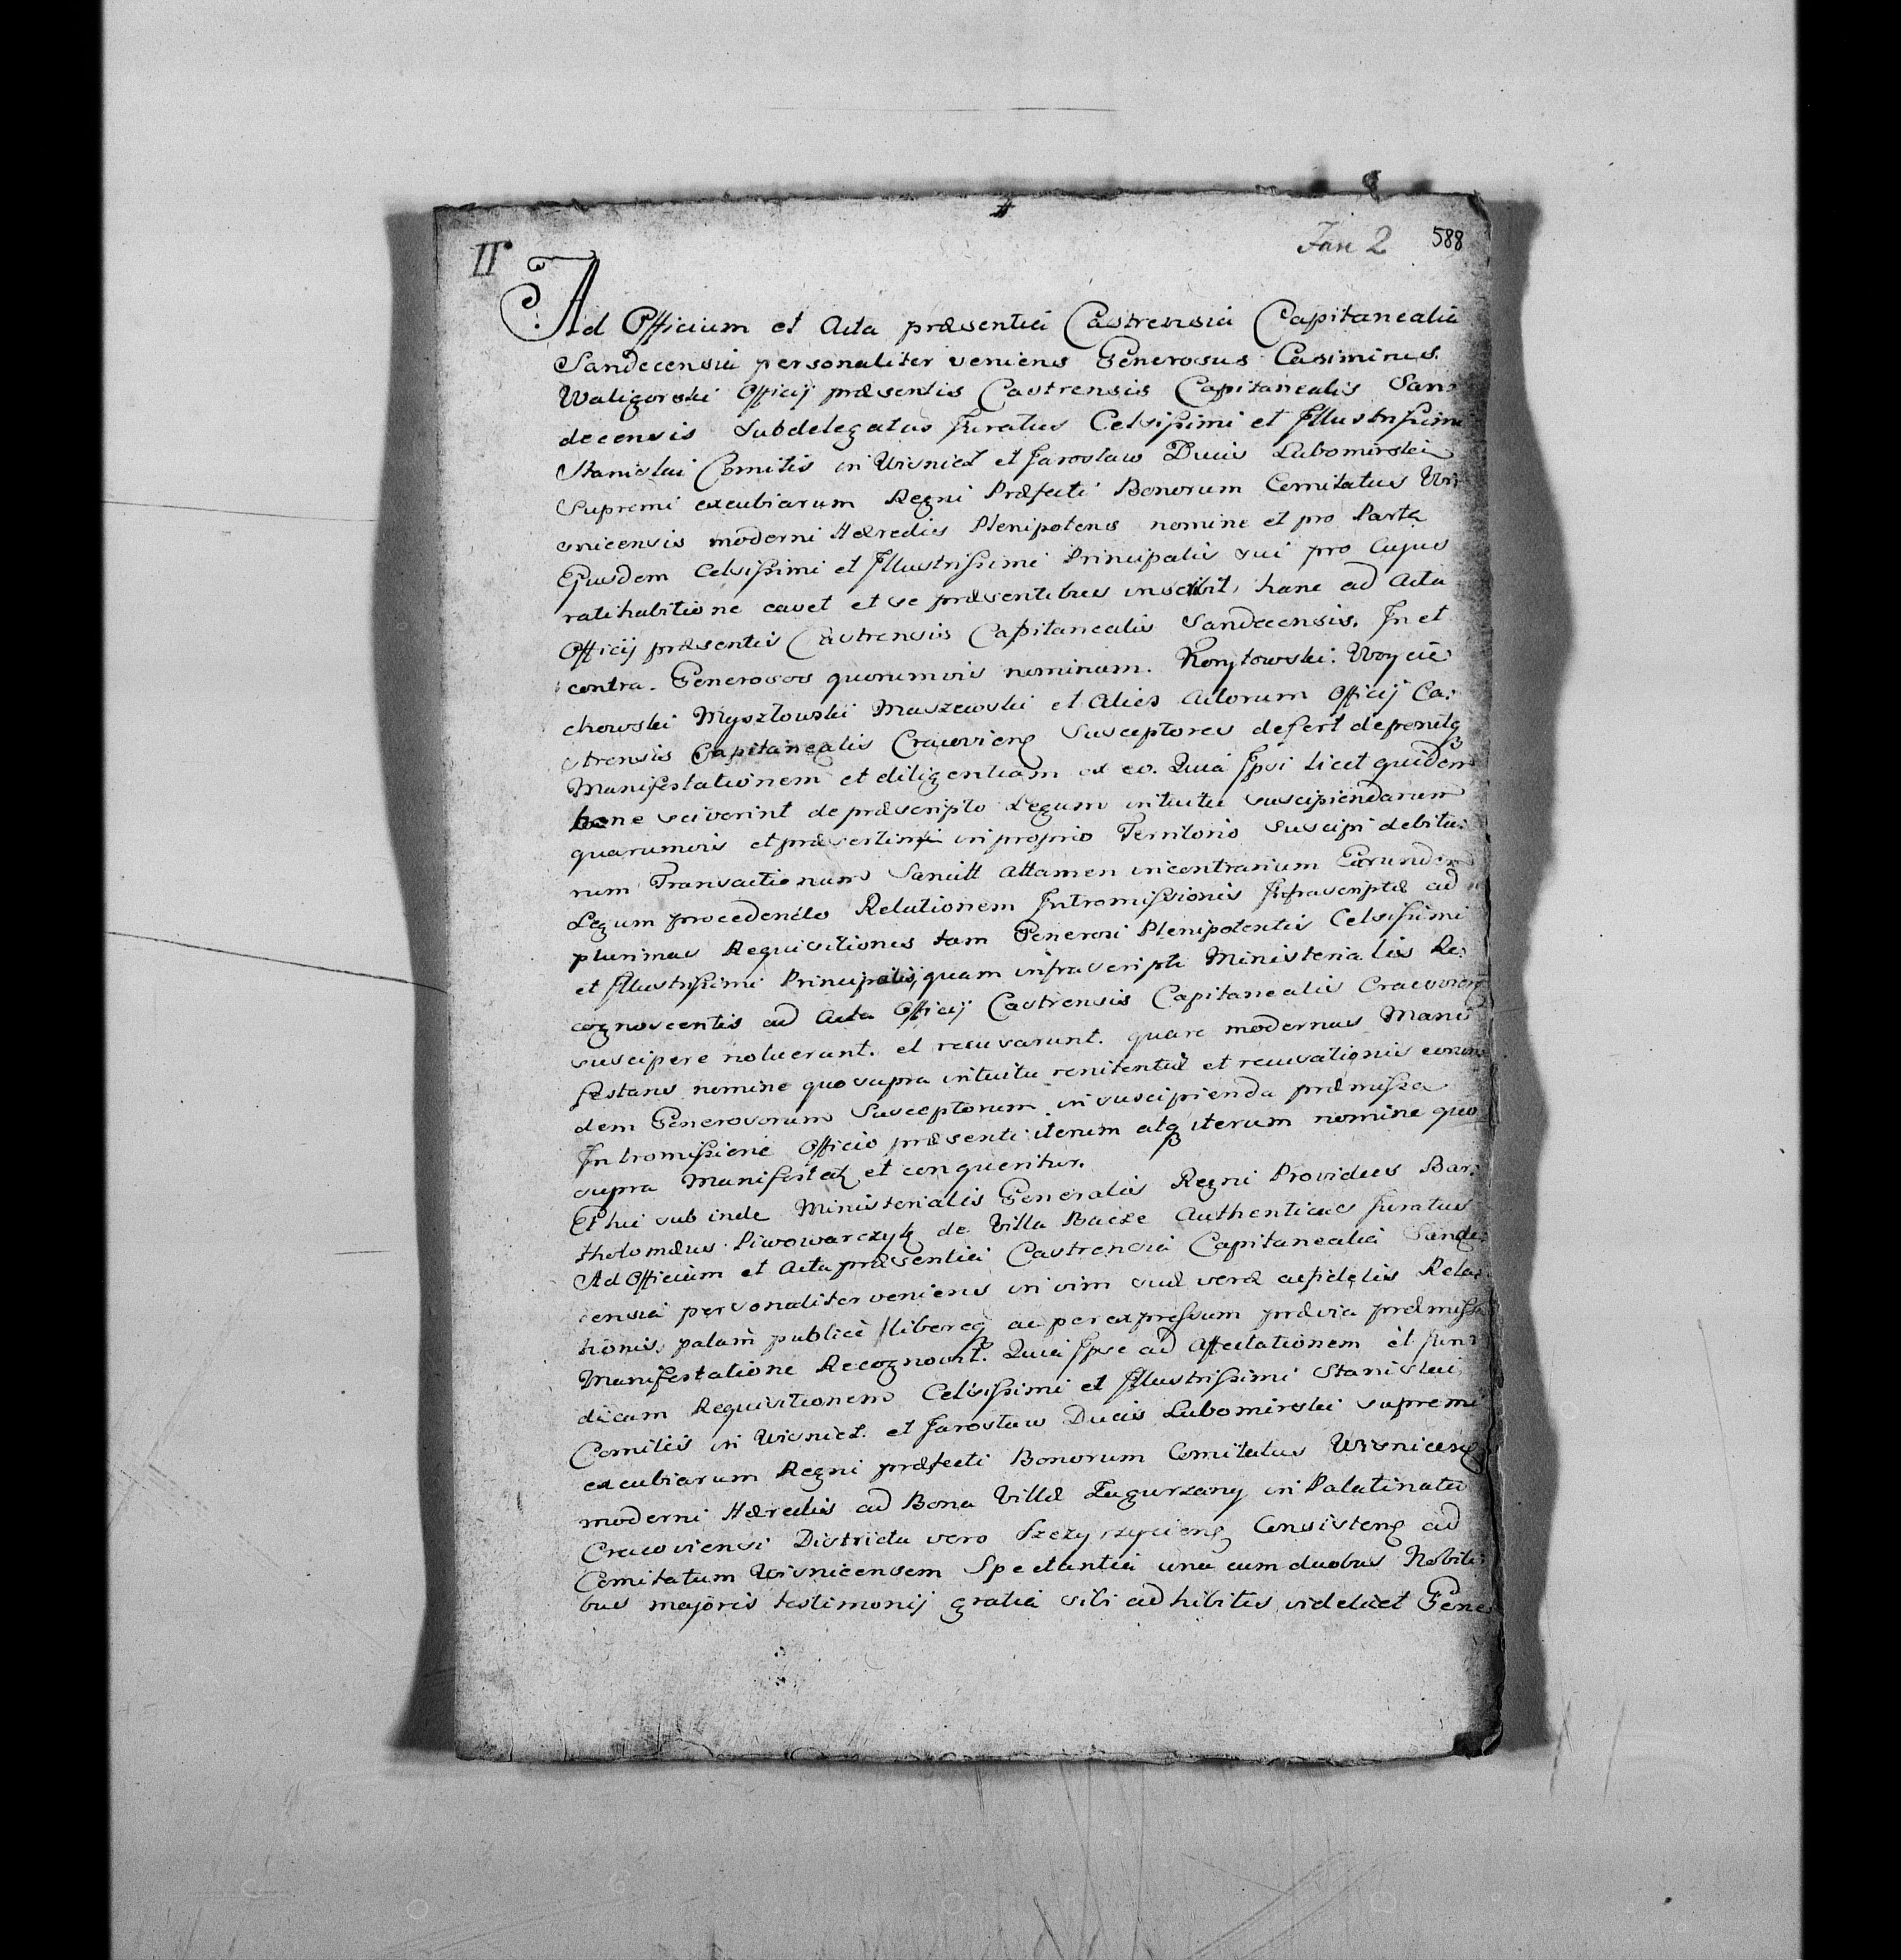 II
Jan 2 588
Ad Officium et Acta præsentia Castrensia Capitanealia
Sandecensia personaliter veniens Generosus Casimirus
Waligorski Officij præsentis Castrensis Capitanealis San:
decensis Subdelegatus Juratus Celsissimi et Illustrissimi
Stanislai Comitis in Wisnicz et Jarosław Ducis Lubomirski
Supremi excubiarum Regni Præfecti Bonorum Comitatus Wi:
snicensis moderni Hæredis Plenipotens nomine et pro Parte
Ejusdem Celsissimi et Illustrissimi Principalis sui pro Cujus
ratihabitione cavet et se præsentibus inscribit, hanc ad Acta
Officij præsentis Castrensis Capitanealis Sandecensis. In et
contra Generosos quorumvis nominum. Korytowski. Woycie:
chowski Myszkowski Maszewski et Alios Actorum Officij Ca:
strensis Capitanealis Cracovienς Susceptores defert deponitq
Manifestationem et diligentiam ex eo. Quia Ipsi licet quidem
bene sciverint de præscripto Legum intuitu suscipiendarum
quarumvis et præsertim in proprio Territorio Suscipi debita:
rum Transactionum Sancitt attamen in contrarium Earundem
Legum procedendo Relationem Intromissionis Infrascriptæ ad
plurimas Requisitiones tam Generosi Plenipotentis Celsissimi
et Illustrissimi Principalis, quam infrascripti Ministerialis Re:
cognoscentis ad Acta Officij Castrensis Capitanealis Cracovienς
suscipere noluerunt. et recusarunt. quare modernus Mani
festans nomine quo supra intuitu renitentiæ et recusationis eorun
dem Generosorum Susceptorum in suscipienda præmissa
Intromissione Officio præsenti iterum atq iterum nomine quo
supra Manifestatς et conqueritur.
Et hic sub inde Ministerialis Generalis Regni Providus Bar:
tholomæus Piwowarczyk de Villa Bacze Authenticus Juratus
Ad Officium et Acta præsentia Castrensia Capitanealia Sande:
censia personaliter veniens in vim suæ veræ ac fidelis Rela:
tionis, palam publicè libereq ac per expressum prævia præmissa
Manifestatione Recognovit. Quia Ipse ad Affectationem et Juri:
dicam Requisitionem Celsissimi et Illustrissimi Stanislai
Comitis in Wisnicz. et Jarosław Ducis Lubomirski supremi
excubiarum Regni præfecti Bonorum Comitatus Wisnicenς
moderni Hæredis ad Bona Villæ Zagurzany in Palatinatu
Cracoviensi Districtu vero Szczyrzycienς Consistenς ad
Comitatum Wisnicensem Spectantia una cum duobus Nobili:
bus majoris testimonij gratia sibi adhibitis videlicet Gene